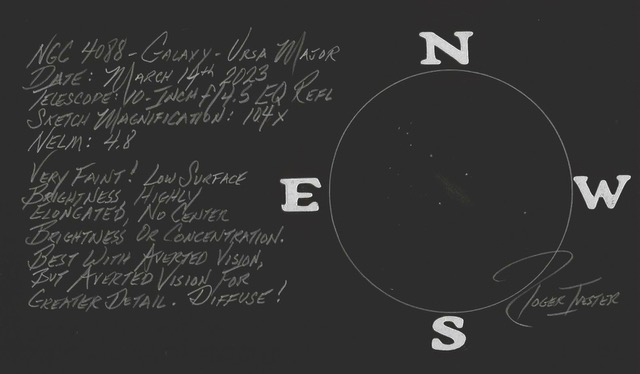 NGC 4088 - Galaxy - Ursa Major
Date: March 14th 2023
Telescope: 10-Inch f/4.5 EQ Refl
Sketch Magnification: 104x
NELM: 4.8
Very Faint! Low Surface
Brightness, Highly
Elongated, No Center
Brightness Or Concentration.
Best With Averted Vision,
But Averted Vision For
Greater Detail. Diffuse!
N
E
W
S
Roger Ivester